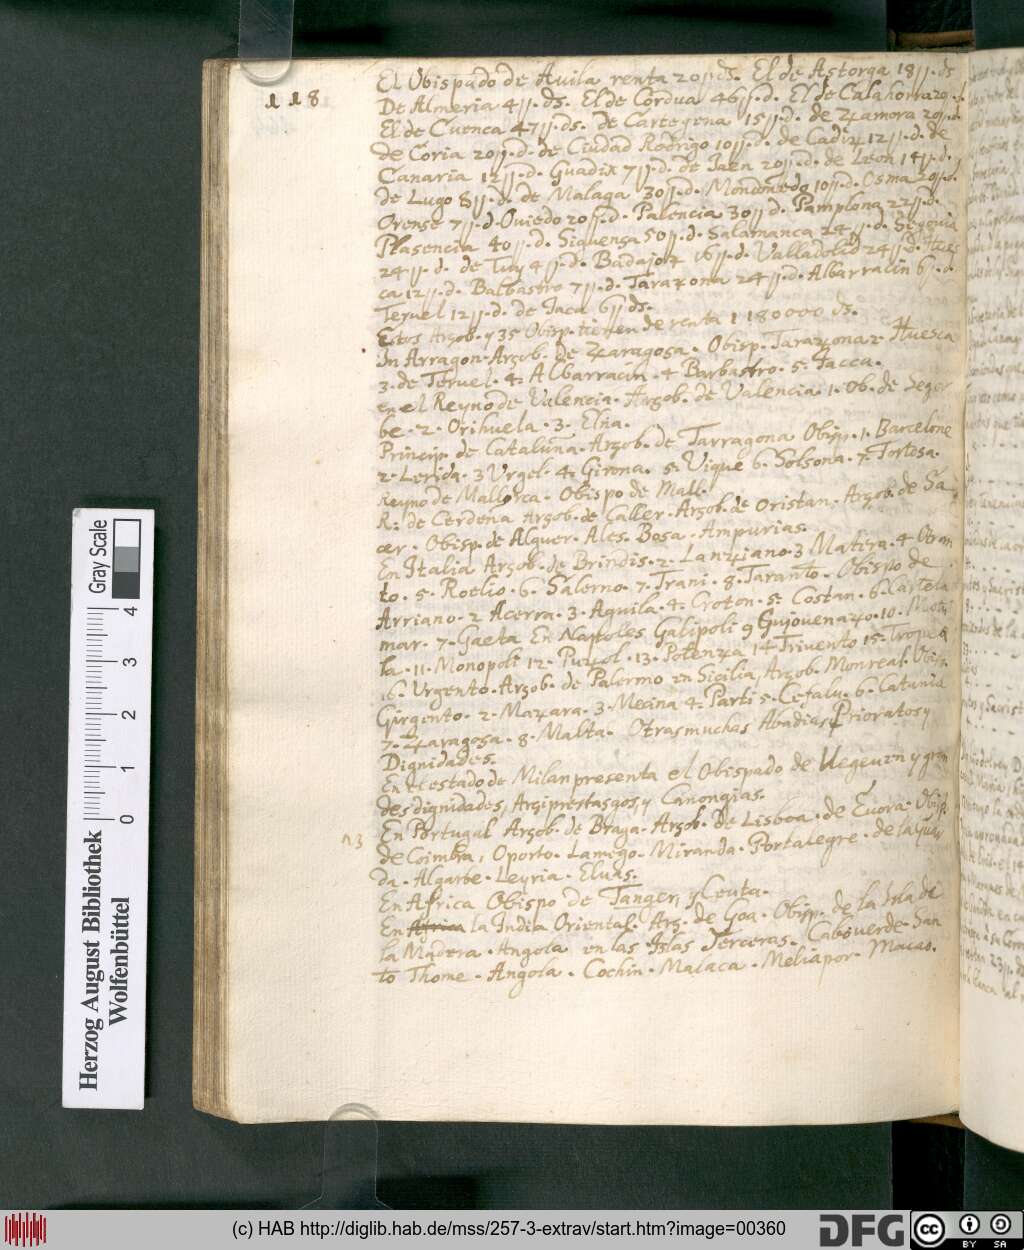 118
El Obispado de Auila renta 20 ɟɟ. ds. El de Astorga 18 ɟɟ. ds
De Almeria 4 ɟɟ. ds. El de Cordua 46 ɟɟ. d. El de Calahorra 20
El de Cuenca 47 ɟɟ. ds. de Cartegena 15 ɟɟ. d. de Zamora 20 ɟɟ. d.
de Coria 20 ɟɟ. d. de Ciudad Rodrigo 10 ɟɟ. d. de Cadiz 12 ɟɟ. d. de
Canaria 12 ɟɟ. d. Guadix 7 ɟɟ. d. de Jaen 20 ɟɟ. d. de Leon 14 ɟɟ. d.
de Lugo 8 ɟɟ. d. de Malaga 30 ɟɟ. d. Mondonedo 10 ɟɟ. d. Osma 20 ɟɟ. d.
Orense 7 ɟɟ. d. Ouiedo 20 ɟɟ. d. Palencia 30 ɟɟ d. Pamplona 22 ɟɟ. d.
Plasencia 40 ɟɟ. d. Siguensa 50 ɟɟ. d. Salamanca 24 ɟɟ. d. Segouia
24 ɟɟ. d. de Tuy 4 ɟɟ. d. Badajoz 16 ɟɟ. d. Valladolid 24 ɟɟ. d. Hues
ca 12 ɟɟ. d. Balbastro 7 ɟɟ. d. Taraxona 24 ɟɟ. d. Albarracin 6 ɟɟ. d
Teruel 12 ɟɟ. d. de Jaca 6 ɟɟ ds.
Estos Arçob. y 35 Obisp. tienen de renta 1 180000 ds.
In Arragon. Arçob. de Zaragosa. Obisp. Tarazona 2. Huesca
3. de Teruel. 4. Albarracin. 4 Barbastro. 5. Jacca.
en el Reyno de Valencia. Arçob. de Valencia. 1. Ob. de Segor
be. 2. Orihuela. 3. Elna.
Princip. de Cataluña. Arçob. de Tarragona Obisp. 1. Barcelone
2. Lerida. 3 Urgel. 4. Girona. 5. Vique 6. Solsona. 7. Tortosa.
Reyno de Mallorca. Obispo de Mall.
R: de Cerdeña Arçob. de Caller. Arçob. de Oristan. Arçob. de Sa
cer. Obisp. de Alguer. Ales. Bosa. Ampurias.
En Italia Arçob. de Brindis. 2. Lanziano. 3 Matera. 4. Otran
to. 5. Roelio. 6. Salerno. 7. Trani. 8. Taranto. Obispo de
Arriano. 2 Acerra. 3. Aquila. 4. Croton. 5. Costan. 6. Castela
mar. 7. Gaeta En Napoles Galipoli 9 Gujouenazo. 10.
la. 11. Monopoli 12. Puzol. 13. Potenza 14 Triuento 15. Tropea
16. Urgento. Arçob. de Palermo en Sicilia, Arçob. Monreal. Obisp.
Girgento. 2. Mazara. 3. Mecina 4. Parti 5. Cefalu. 6. Catania
7. Zaragosa. 8. Malta. Otras muchas Abadias, Prioratos y
Dignidades.
En el estado de Milan presenta el Obispado de Uegeuen y gran
des dignidades, Arçiprestasgos, y Canongias.
n3 En Portugal Arçob. de Braga. Arçob. de Lisboa. de Euora. Obisp.
de Coimbra, Oporto. Lamego. Miranda. Portalegre. de la Guar
da. Algarbe. Leyria. Eluas.
En Africa Obispo de Tanger, y Ceuta.
En Africa la India Oriental. Arç. de Goa. Obisp. de la Isla de
la Madera. Angola en las Islas Terceras. Caboverde. San
to Thome. Angola. Cochin. Malaca. Meliapor. Macao.
Herzog August Bibliothek
Wolfenbüttel
Gray Scale
0 1 2 3 4
(c) HAB http://diglib.hab.de/mss/257-3-extrav/start.htm?image=00360
DFG
cc BY SA